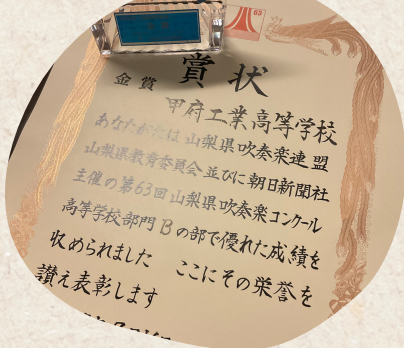 63
賞状
金賞
甲府工業高等学校
あなたがたは山梨県吹奏楽連盟
山梨県教育委員会並びに朝日新聞社
主催の第63回山梨県吹奏楽コンクール
高等学校部門Bの部で優れた成績を
収められました ここにその栄誉を
讃え表彰します